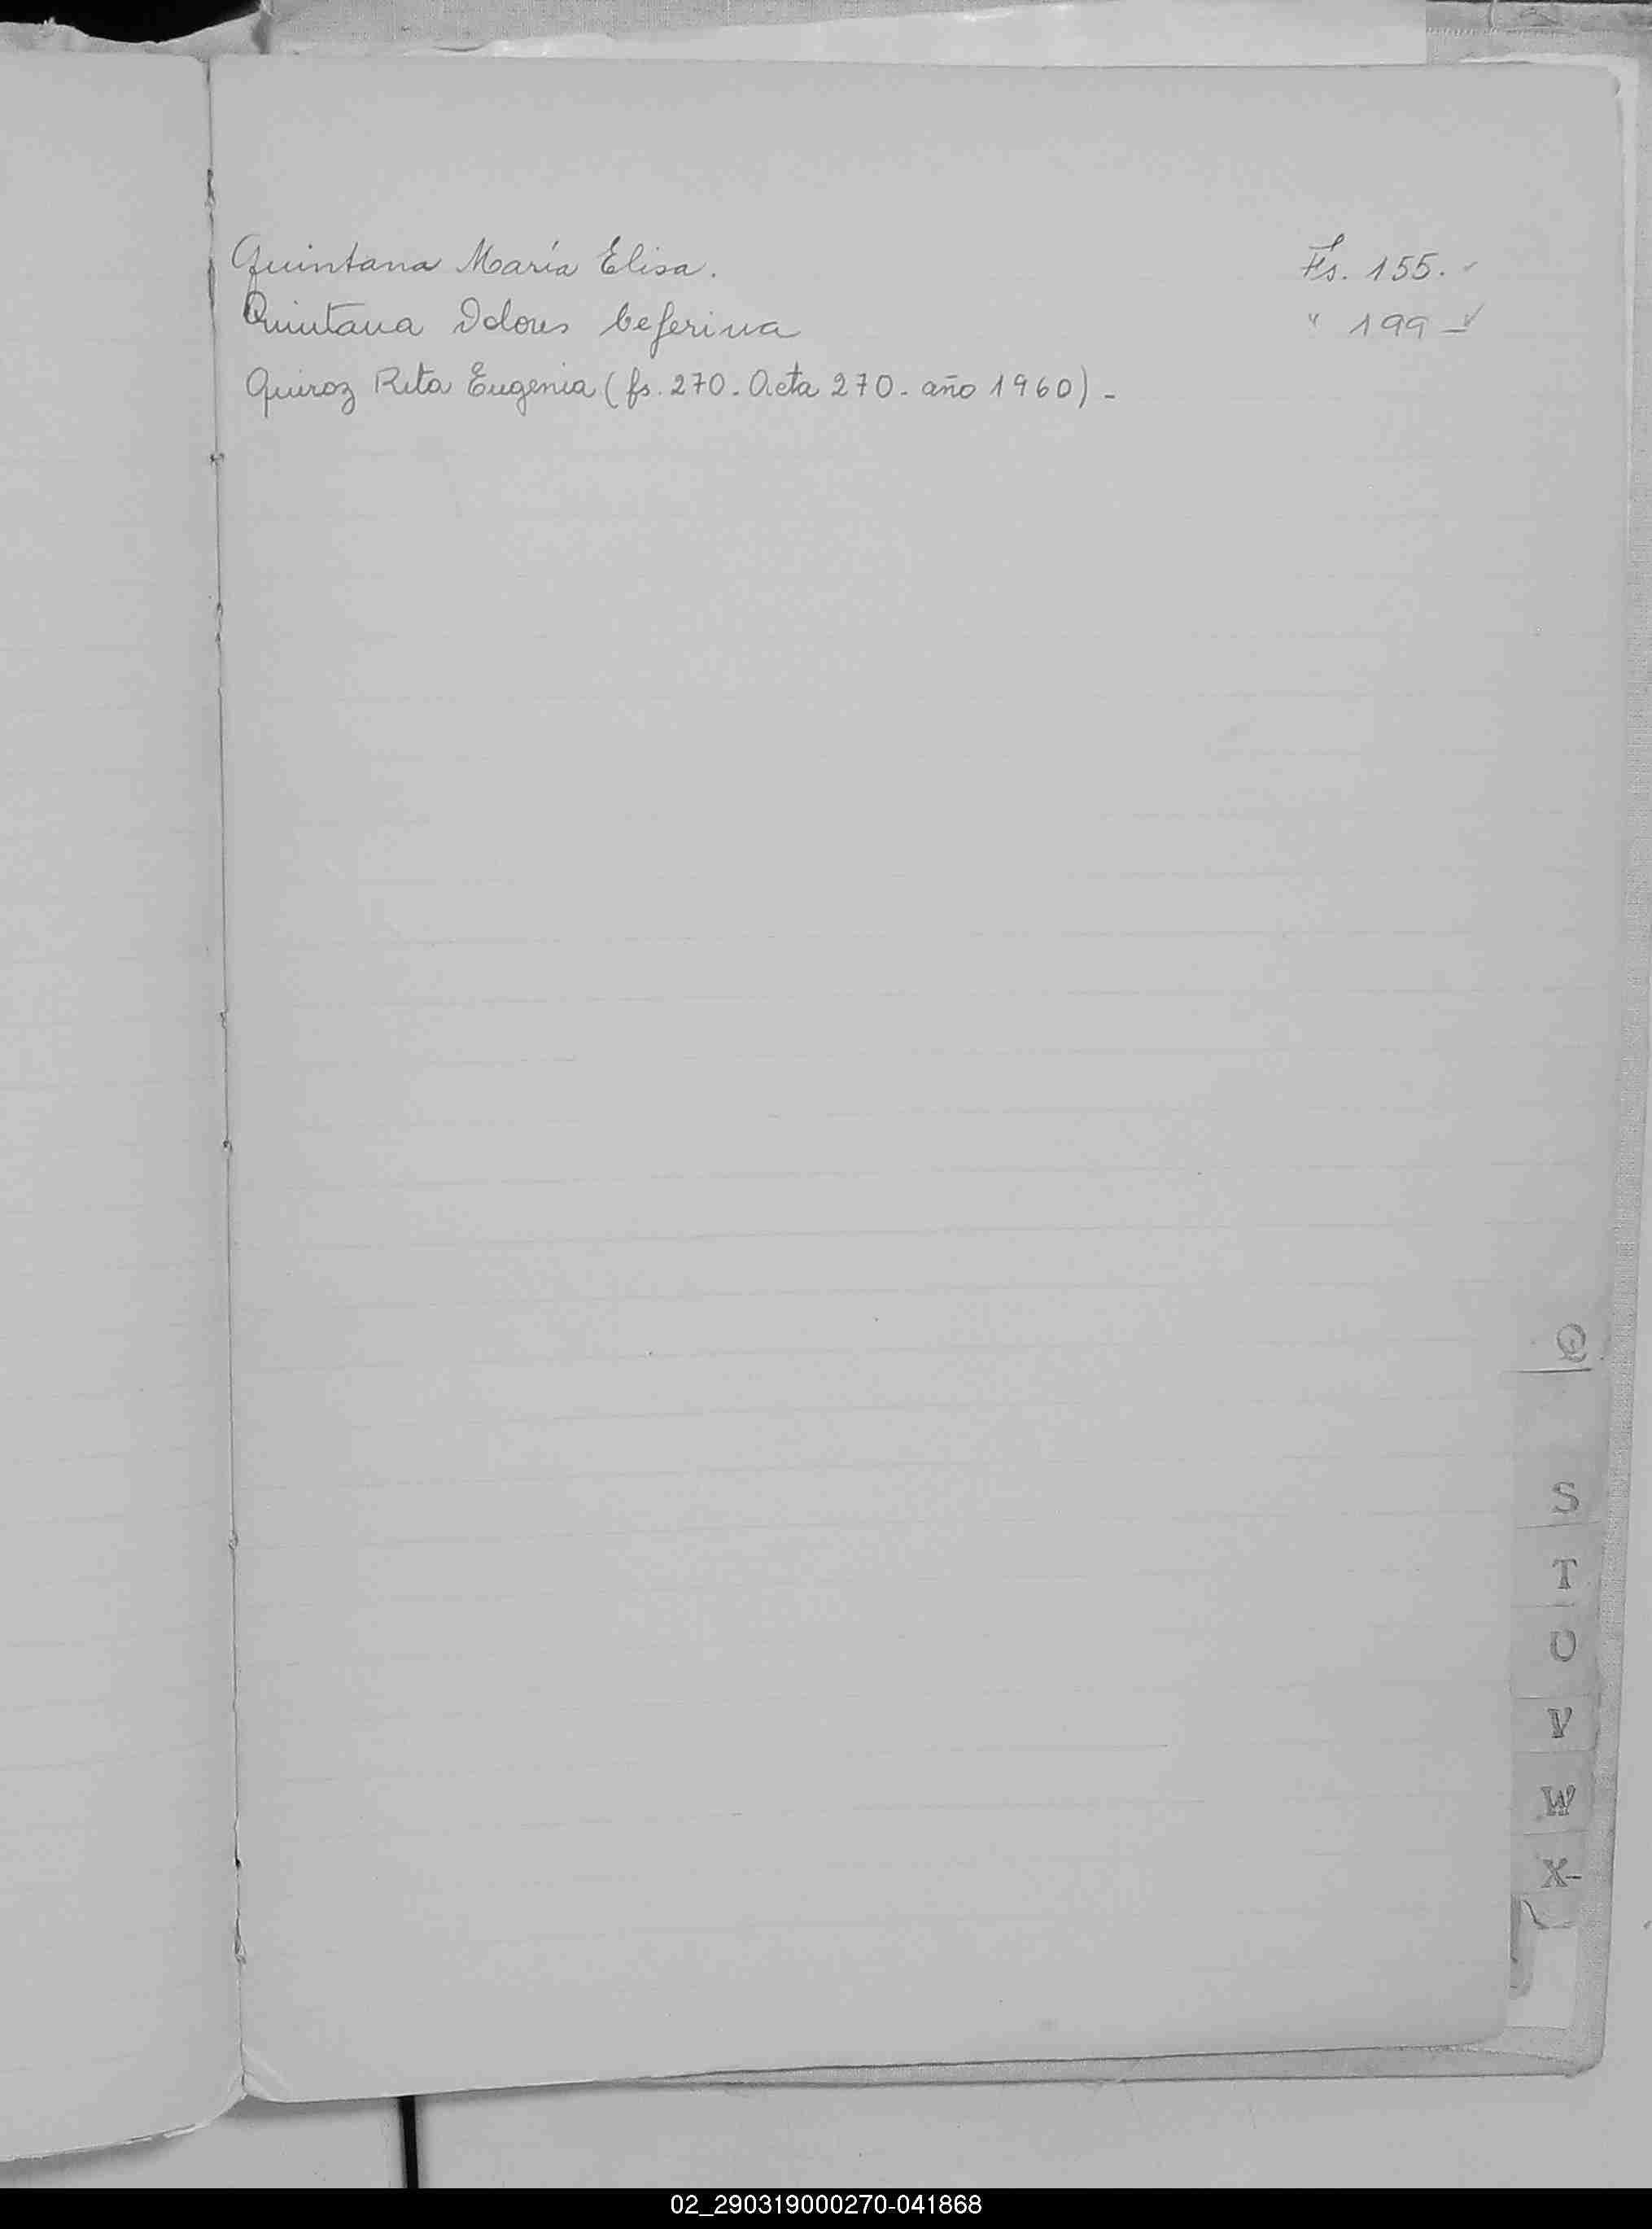 Quintana María Elisa. Fs. 155.
Quintana Dolores Ceferina " 199 -
Quiroz Rita Eugenia (fs. 270. Acta 270. año 1960) -
Q
S
T
U
V
W
X-
02_290319000270-041868